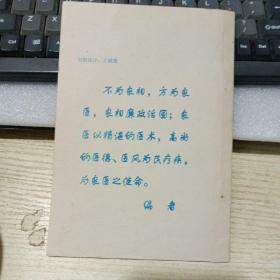 封面设计：王曉鷹
不为良相，方为良
医，良相廉政治国；良
医以精湛的医术，高尚
的医德、医风为民疗疾，
为良医之使命。
编者